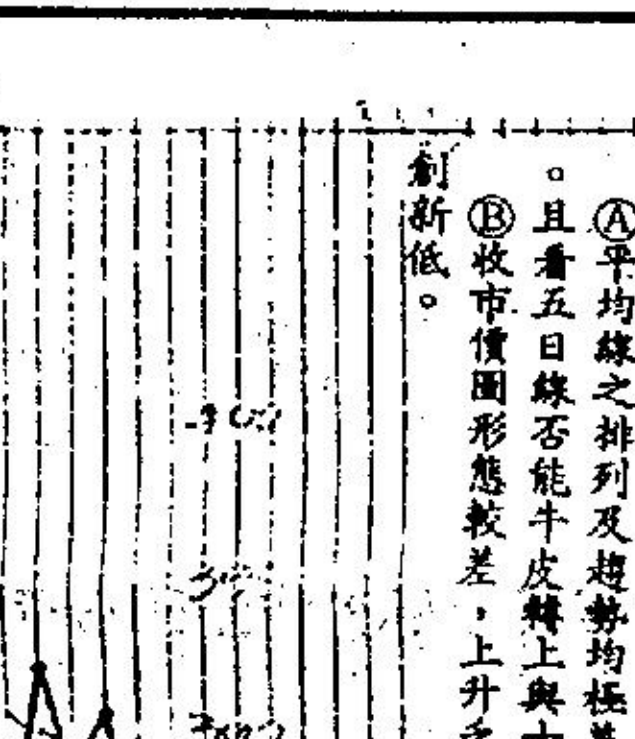 Ⓐ平均線之排列及趨勢均極
。且看五日線否能牛皮轉上與
Ⓑ收市價圖形態較差,上升
創新低。